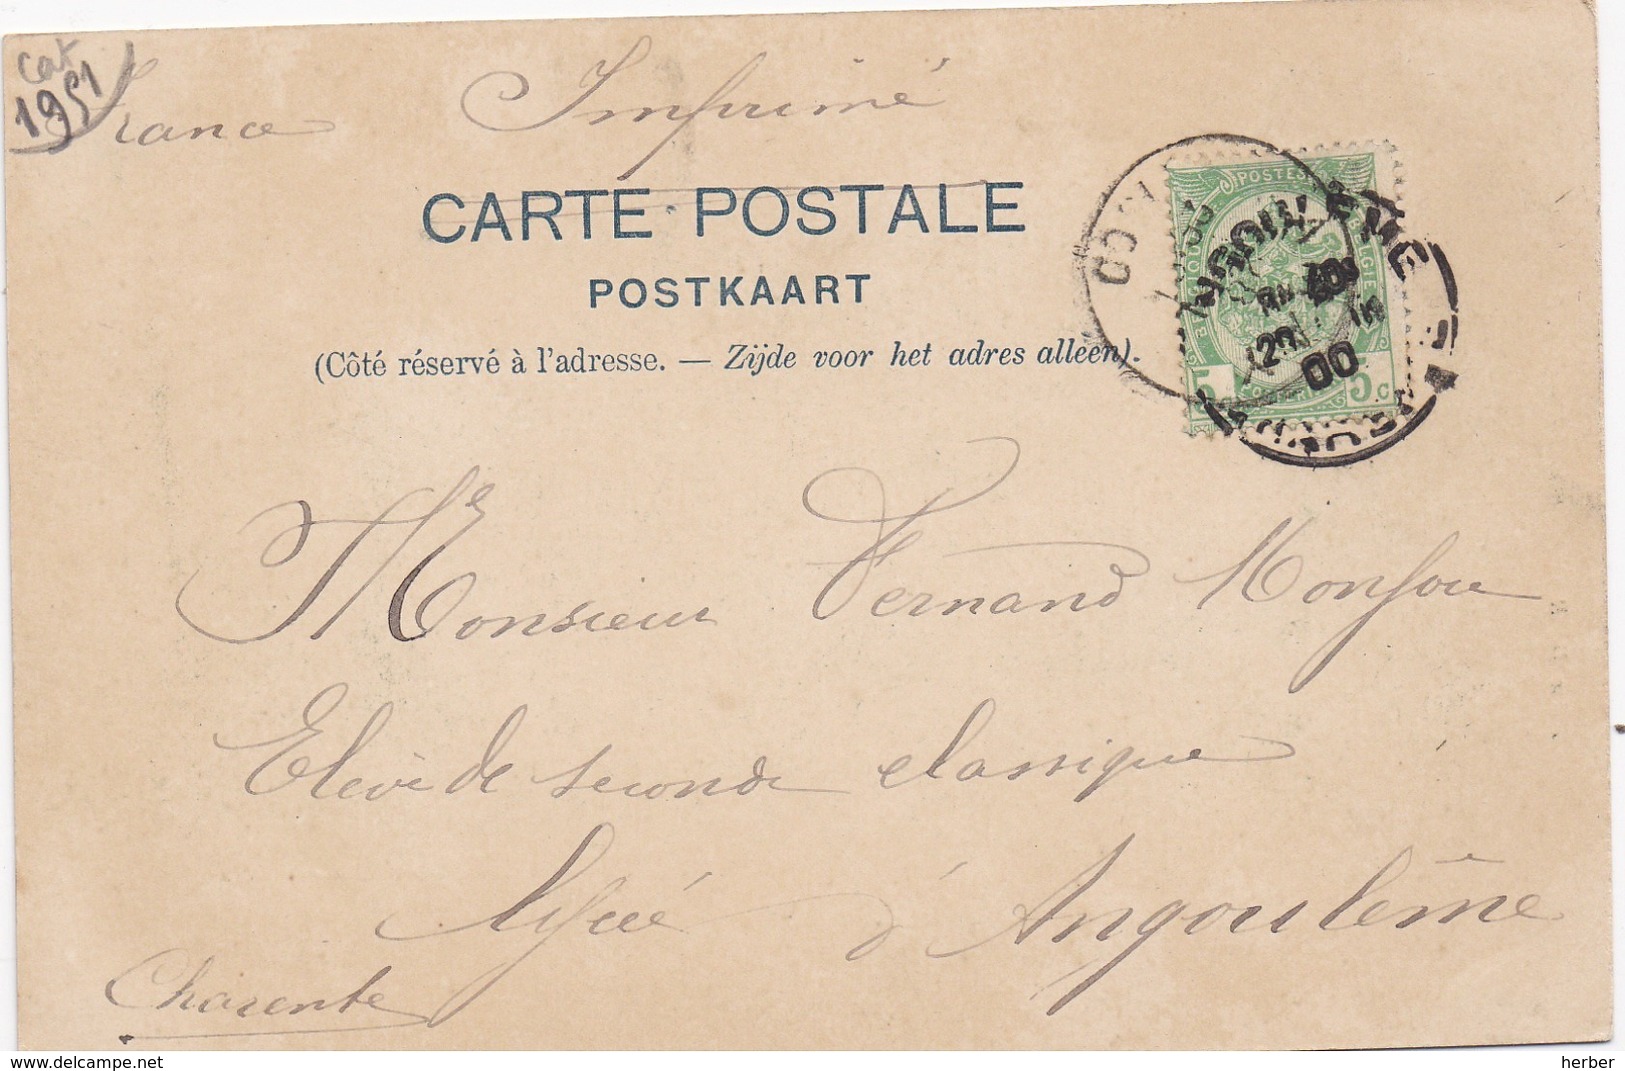 Cat
1951
France
Imprimé
CARTE POSTALE
POSTKAART
(Côté réservé à l'adresse. — Zijde voor het adres alleen).
POSTES
5 5
C
ANGOULEME
20
00
Monsieur Fernand Monfou
Elève de seconde classique
Lycée d'Angoulême
Charente
delcampe.net
herber